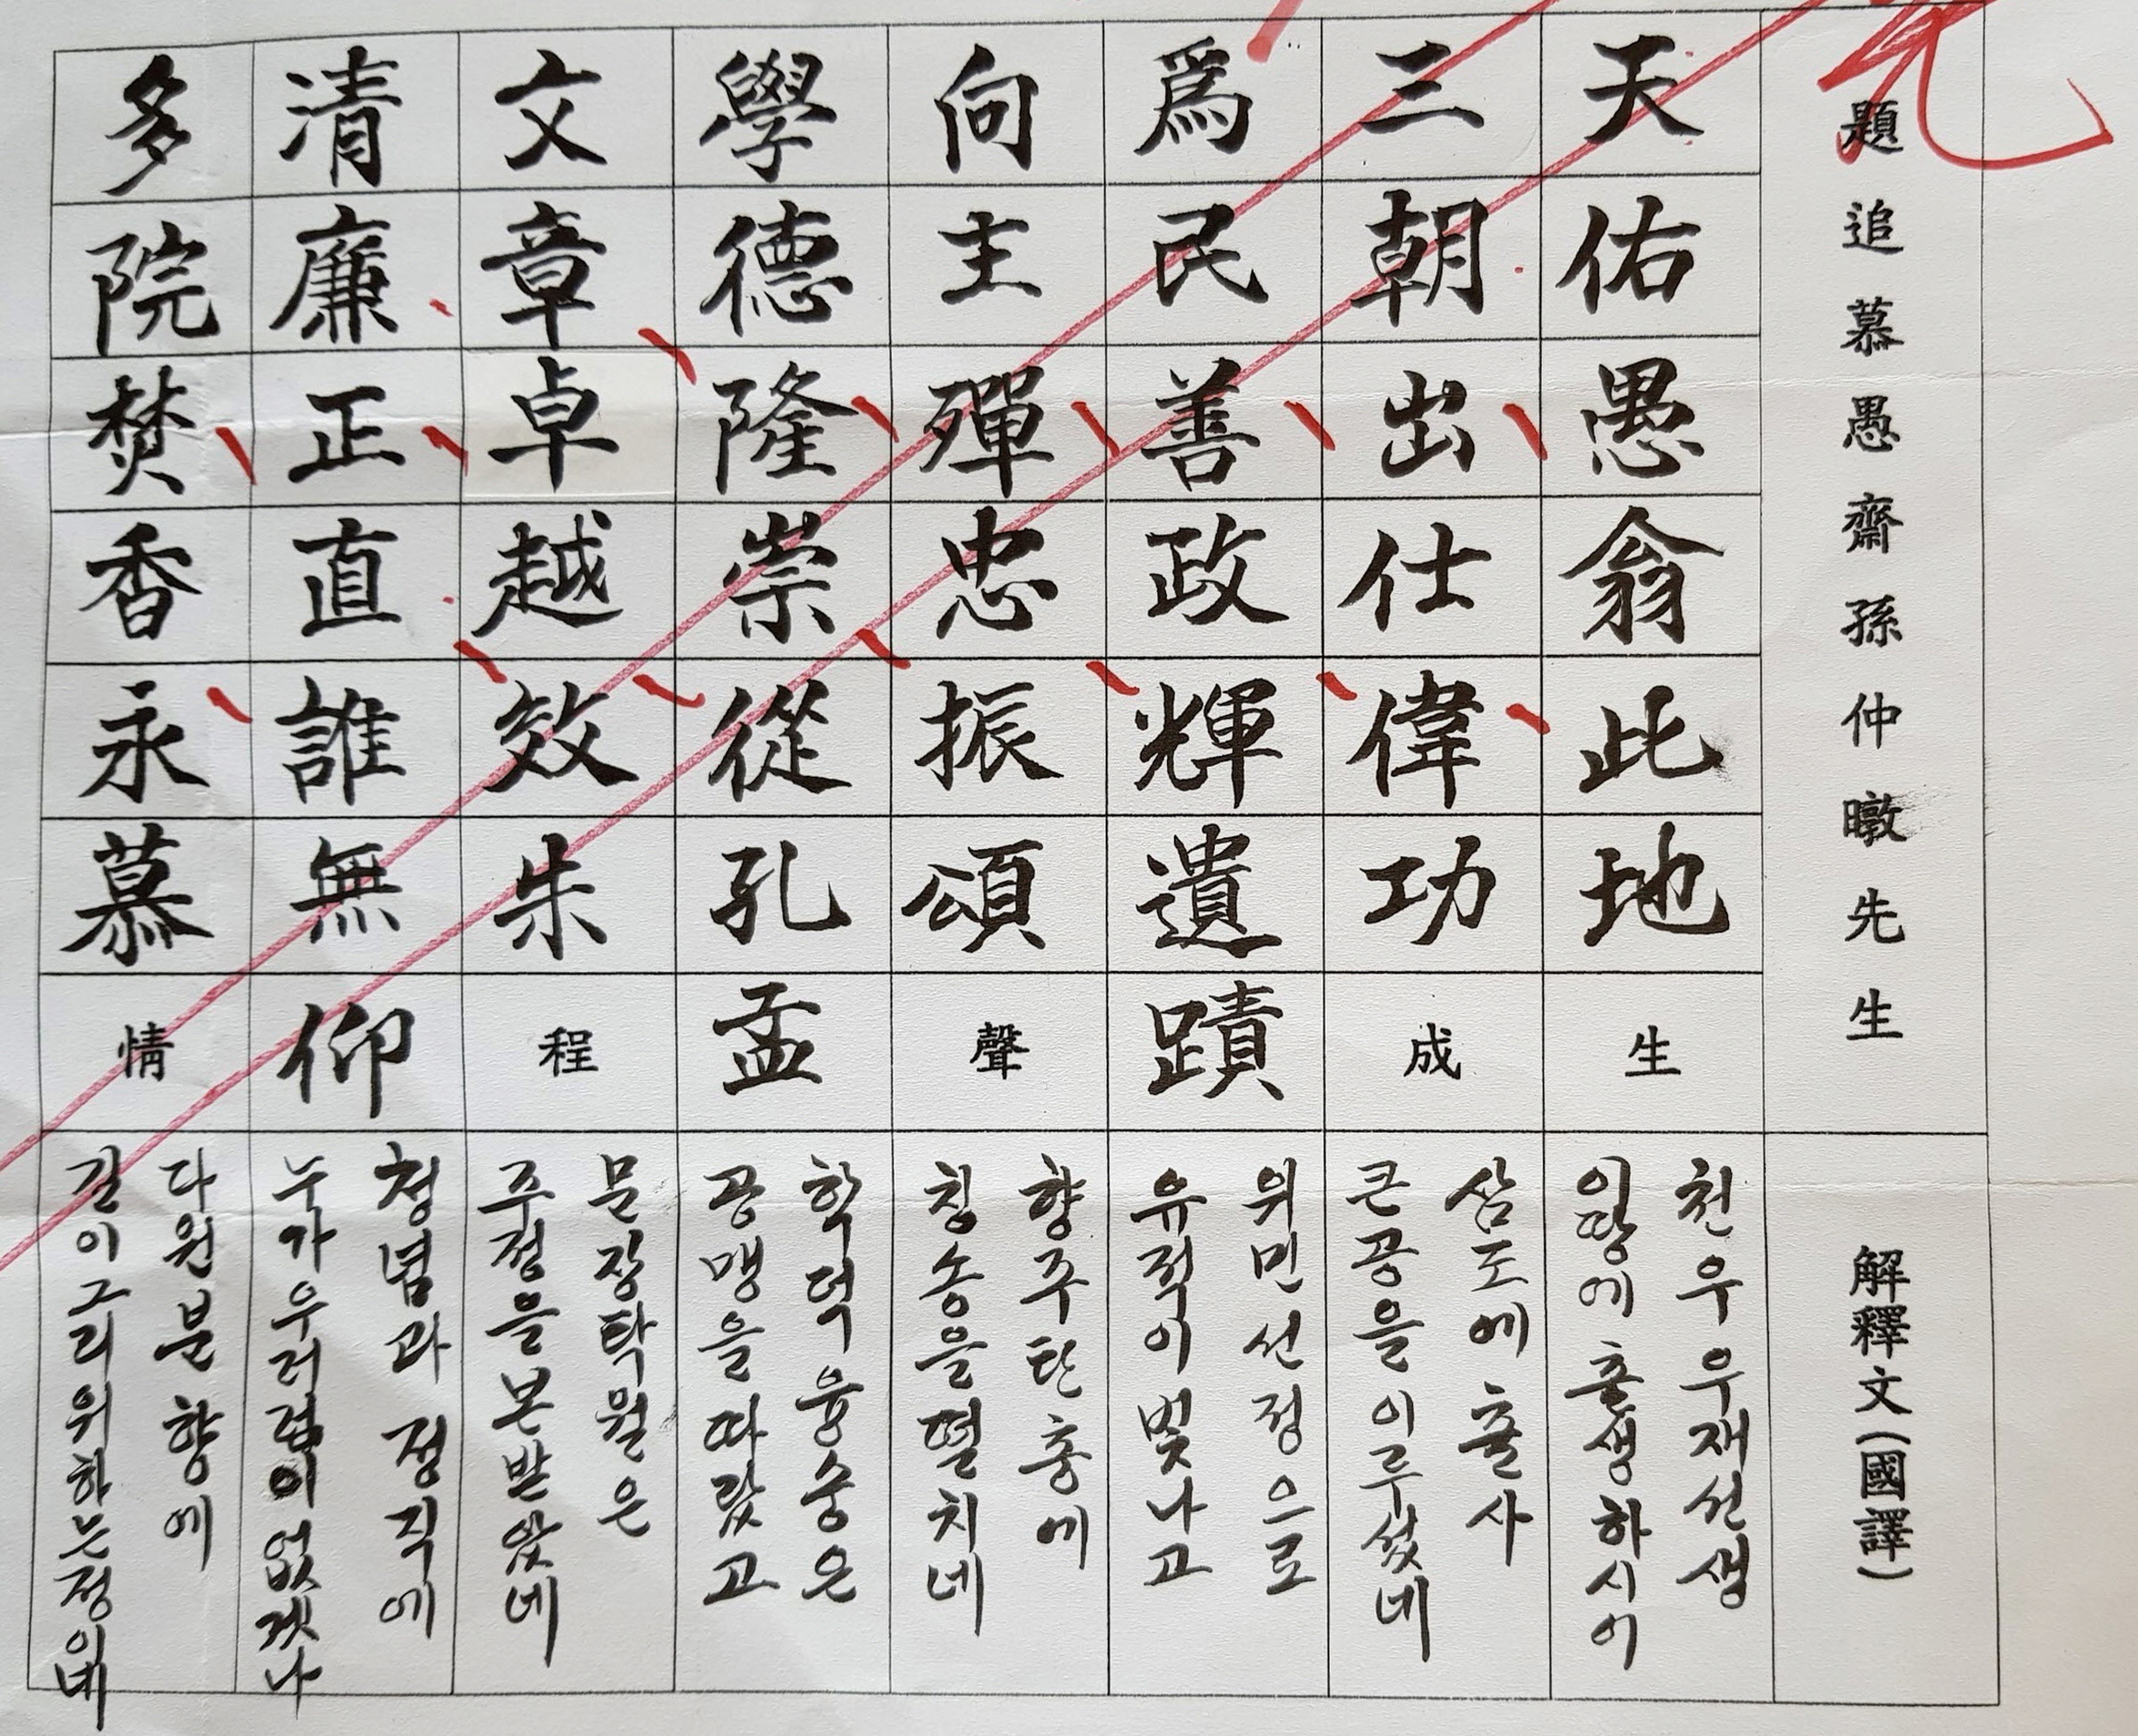 題追慕愚齋孫仲暾先生
天佑愚翁此地生
三朝出仕偉功成
爲民善政輝遺蹟
向主殫忠振頌聲
學德隆崇從孔孟
文章卓越效朱程
清廉正直誰無仰
多院焚香永慕情
解釋文(國譯)
천우우재선생
이땅에 출생하시이
삼도에 출사
큰공을 이루셨네
위민선정으로
유적이 빛나고
향주탄충에
칭송을 떨치네
학덕융숭은
공맹을 따랐고
문장탁월은
주정을 본받았네
청념과 정직에
누가 우러럼이 없겠나
다원분향에
길이 그리위하는 정이네